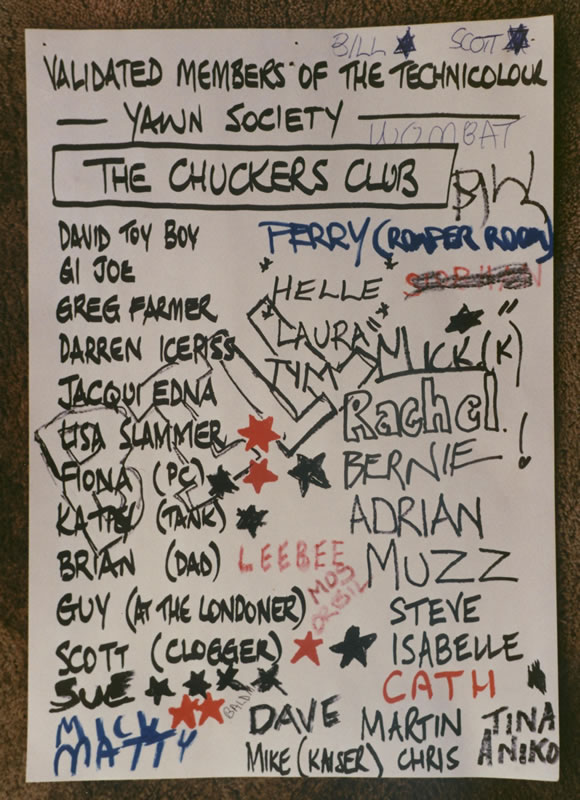 BILL SCOTT
VALIDATED MEMBERS OF THE TECHNICOLOUR
— YAWN SOCIETY —
WOMBAT
THE CHUCKERS CLUB
DAVID TOY BOY
GI JOE
GREG FARMER
DARREN ICEPISS
JACQUI EDNA
LISA SLAMMER
FIONA (PC)
KATHY (TANK)
BRIAN (DAD)
LEEBEE
GUY (AT THE LONDONER)
MOS
SCOTT (CLOGGER)
SUE
MICK
MATTY
BILL
FERRY (ROMPER ROOM)
"HELLE"
"LAURA"
TIM
MICK (K)
Rachel!
BERNIE
ADRIAN
MUZZ
STEVE
ISABELLE
CATH
DAVE MARTIN TINA
MIKE (KAISER) CHRIS ANIKO